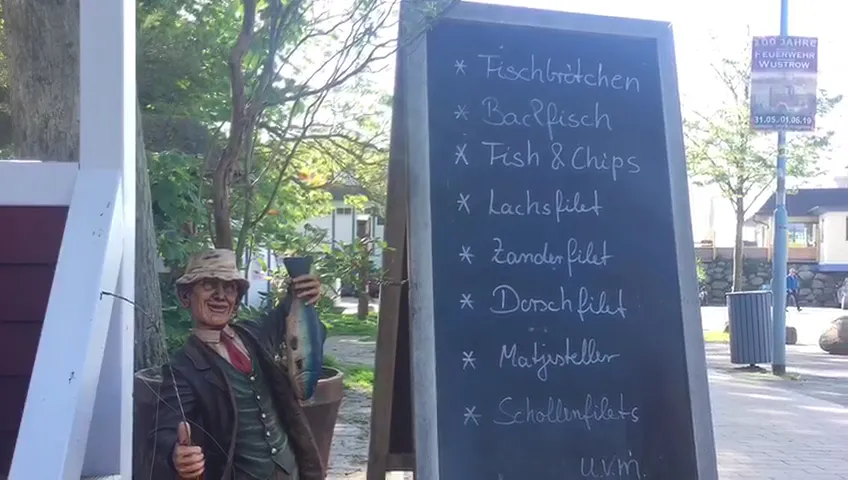 * Fischbrötchen
* Backfisch
* Fish & Chips
* Lachsfilet
* Zanderfilet
* Dorschfilet
* Matjesteller
* Schollenfilets
u.v.m.
100 JAHRE
FEUERWEHR
WUSTROW
31.05.-01.06.19